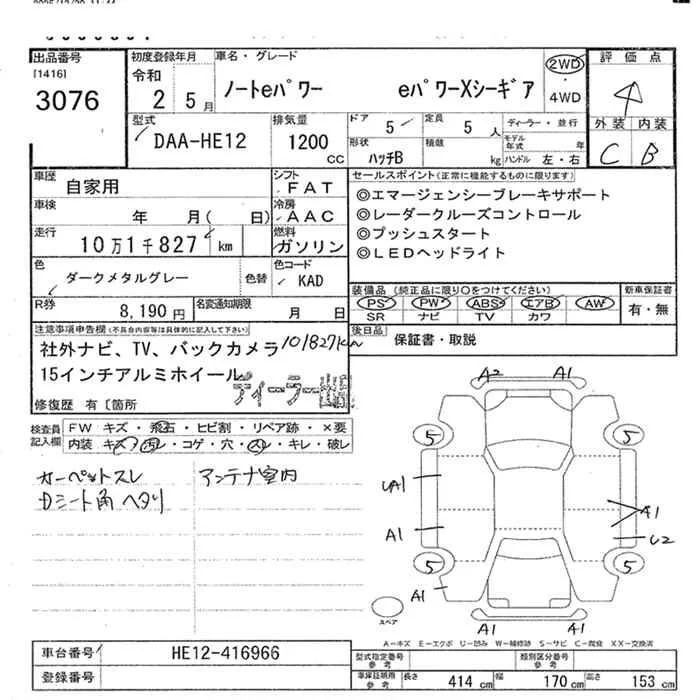 出品番号
[1416]
3076
初度登録年月
令和
2 5月
車名・グレード
ノートeパワー eパワーXシーギア
2WD
・
4WD
評価点
4
外装 内装
C B
型式
DAA-HE12
排気量
1200
CC
ドア 5
定員 5 人
形状 ハッチB
積載 kg
ディーラー・並行
モデル年式 年
ハンドル 左・右
車歴
自家用
シフト
FAT
車検
年 月( 日)
冷房
AAC
走行
10万1千827 km
燃料
ガソリン
色
ダークメタルグレー
色替
色コード
KAD
R券
8,190円
名変通知期限
月 日
セールスポイント(正常に機能するものに限ります)
◎エマージェンシーブレーキサポート
◎レーダークルーズコントロール
◎プッシュスタート
◎LEDヘッドライト
装備品(純正品に限り○をつけてください)
PS PW ABS エアB AW
SR ナビ TV カワ
新車保証書
有・無
後日品
保証書・取説
注意事項申告欄(不具合内容等は具体的に記入して下さい)
社外ナビ、TV、バックカメラ 101827km
15インチアルミホイール
ディーラー
修復歴 有〔箇所
検査員
記入欄
FW キズ・飛石・ヒビ割・リペア跡・×要
内装 キズ・汚レ・コゲ・穴・スレ・キレ・破レ
カーペットスレ
Dシート角ヘタリ
アンテナ室内
A2 A1
5 5
UA1
A1
A1
U2
5 5
A1
A1 A1
スペア
A-キズ E-エクボ U-凹み W-補修跡 S-サビ C-腐食 XX-交換済
車台番号
HE12-416966
登録番号
型式指定番号
参考
類別区分番号
参考
車庫証明用
参考
長さ 414 cm
幅 170 cm
高さ 153 cm